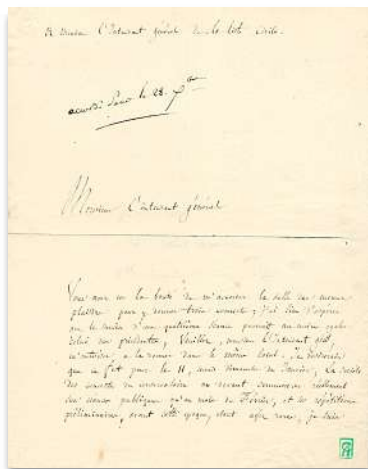 A Monsieur l'Intendant général de la liste civile.
accordé pour le 28. Xbre
Monsieur l'intendant général
Vous avez eu la bonté de m'accorder la salle des menus
plaisirs pour y donner trois concerts; j'ai lieu d'espérer
que le succès d'un quatrième serait au moins égal
celui des précédents, Veuillez, monsieur l'Intendant gal,
m'autoriser à le donner dans le même local. Je désirerais
que ce fut pour le 11, second dimanche de Janvier, la Société
des concerts du conservatoire ne devant commencer
ses séances publiques qu'au mois de Février, et les répétitions
préliminaires, avant cette époque, étant assez rares, je